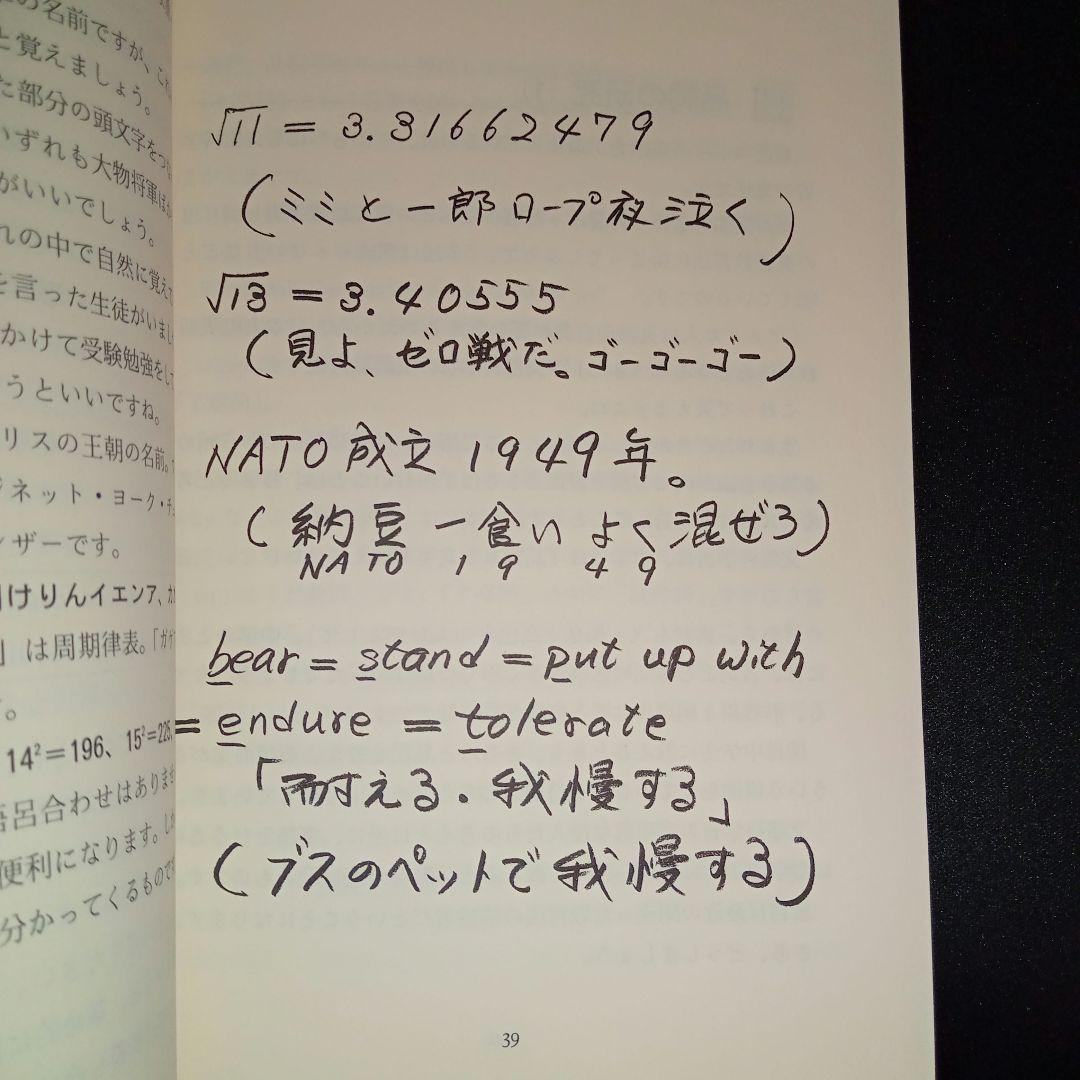 の名前ですが、これ
と覚えましょう。
た部分の頭文字をつな
いずれも大物将軍ばか
がいいでしょう。
れの中で自然に覚えて
を言った生徒がいまし
かけて受験勉強をして
うといいですね。
リスの王朝の名前。
ジネット・ヨーク・チュ
ンザーです。
けりんイエンア、カ
」は周期律表。「ガゲ
。
14²=196、15²=225、
語呂合わせはありませ
便利になります。
分かってくるもので
√11 = 3.31662479
(ミミと一郎ロープ夜泣く)
√13 = 3.40555
(見よ、ゼロ戦だ。ゴーゴーゴー)
NATO 成立 1949年。
(納豆 一食い よく混ぜろ)
NATO 1 9 4 9
bear = stand = put up with
= endure = tolerate
「耐える・我慢する」
(ブスのペットで我慢する)
39